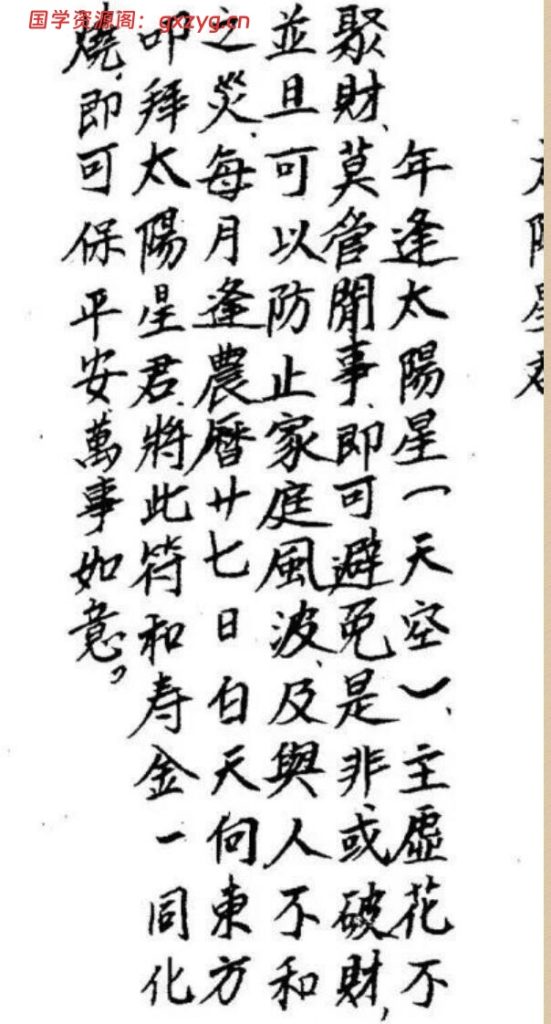 国学资源阁：gxzyg.cn
太陽星君
年逢太陽星(天空)、主虛花不
聚財、莫管閒事、即可避免是非、或破財,
並且可以防止家庭風波、及與人不和
之災、每月逢農曆廿七日白天向東方
叩拜太陽星君、將此符和寿金一同化
燒、即可保平安萬事如意。